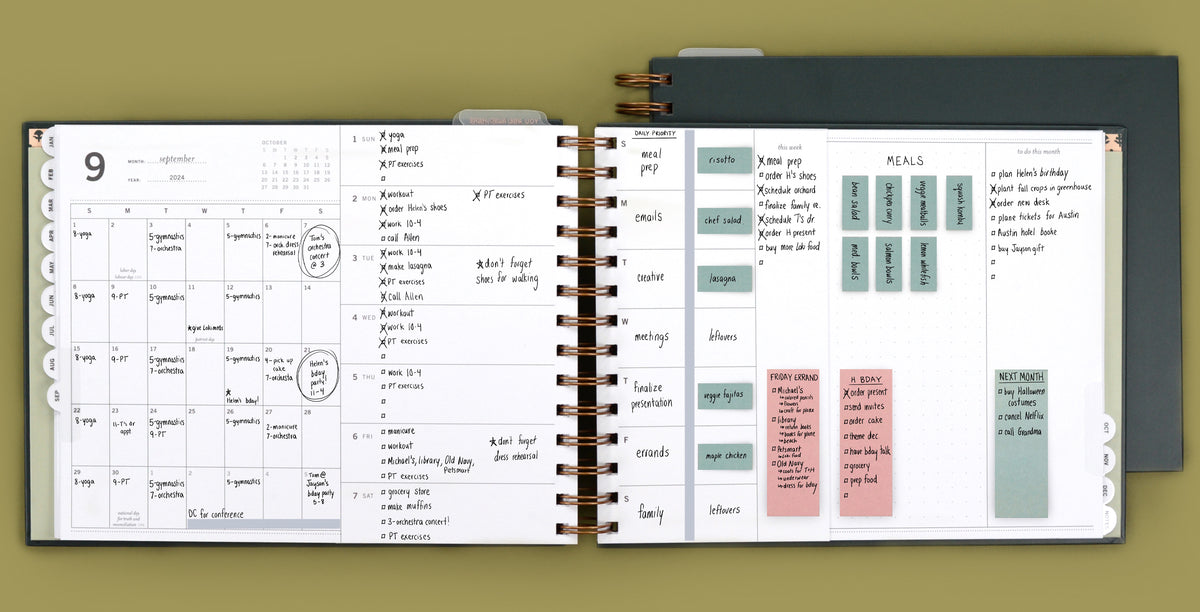 9
MONTH: september
YEAR: 2024
OCTOBER
S M T W T F S
1 2 3 4 5
6 7 8 9 10 11 12
13 14 15 16 17 18 19
20 21 22 23 24 25 26
27 28 29 30 31
JAN
FEB
MAR
APR
MAY
JUN
JUL
AUG
SEP
S M T W T F S
1 2 3 4 5 6 7
8-yoga
labor day
labour day
5-gymnastics
7-orchestra
5-gymnastics
2-manicure
7-orch. dress
rehearsal!
Tom's
orchestra
concert
@ 3
8 9 10 11 12 13 14
8-yoga
9-PT
5-gymnastics
★give Loki meds
patriot day
5-gymnastics
15 16 17 18 19 20 21
8-yoga
9-PT
5-gymnastics
7-orchestra
5-gymnastics
★
Helen's bday!
4-pick up
cake
7-orchestra
Helen's
bday
party!
11-4
22 23 24 25 26 27 28
8-yoga
11-T's dr
appt
5-gymnastics
9-PT
5-gymnastics
2-manicure
7-orchestra
29 30 1 2 3 4 5
8-yoga
9-PT
national day
for truth and
reconciliation
5-gymnastics
7-orchestra
5-gymnastics
Tom @
Jayson's
bday party
5-8
DC for conference
1 SUN
yoga
meal prep
PT exercises
2 MON
workout
order Helen's shoes
work 10-4
call Allen
PT exercises
3 TUE
work 10-4
make lasagna
PT exercises
Call Allen
★don't forget
shoes for walking
4 WED
workout
work 10-4
PT exercises
5 THU
work 10-4
PT exercises
6 FRI
manicure
workout
Michael's, library, Old Navy,
Petsmart
PT exercises
★don't forget
dress rehearsal
7 SAT
grocery store
make muffins
3-orchestra concert!
PT exercises
DAILY PRIORITY
S
meal
prep
risotto
M
emails
chef salad
T
creative
lasagna
W
meetings
leftovers
T
finalize
presentation
veggie fajitas
F
errands
maple chicken
S
family
leftovers
this week
meal prep
order H's shoes
schedule orchard
finalize family re.
schedule T's dr.
order H present
buy more Loki food
FRIDAY ERRAND
Michael's
↳colored pencils
↳flowers
↳craft for plane
library
↳return books
↳books for plane
↳beach
Petsmart
↳Loki food
Old Navy
↳underwear
↳dress for bday
MEALS
bean salad
chickpea curry
veggie meatballs
squash kombu
med bowls
salmon bowls
lemon whitefish
H BDAY
order present
send invites
order cake
theme dec.
have bday talk
grocery
prep food
to do this month
plan Helen's birthday
plant fall crops in greenhouse
order new desk
plane tickets for Austin
Austin hotel booke
buy Jayson gift
NEXT MONTH
buy Halloween
costumes
cancel Netflix
call Grandma
OCT
NOV
DEC
NOTES